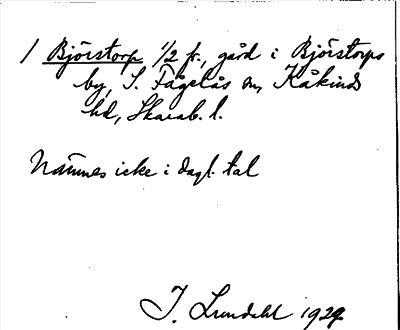 / Björstorp 1/2 fr., gård i Björstorps
by, S. Fågelås sn, Kåkinds
hd, Skarab. l.
Nämnes icke i dagl. tal
J. Lundahl 1929